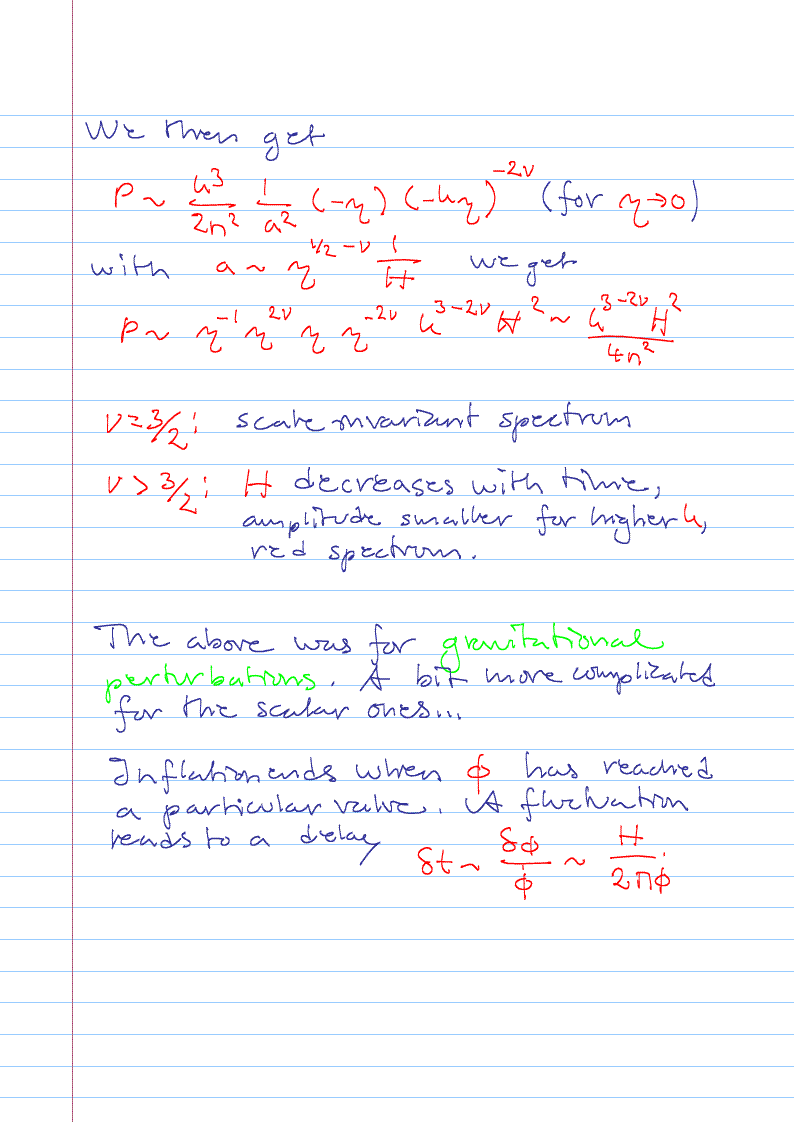 We then get
P ~ k³/2π² 1/a² (-η) (-kη)^-2ν (for η→0)
with a ~ η^1/2-ν 1/H we get
P ~ η^-1 η^2ν η η^-2ν k^3-2ν H² ~ k^3-2ν H²/4π²
ν=3/2: scale invariant spectrum
ν > 3/2: H decreases with time,
amplitude smaller for higher k,
red spectrum.
The above was for gravitational
perturbations. A bit more complicated
for the scalar ones...
Inflation ends when φ has reached
a particular value. A fluctuation
leads to a delay δt ~ δφ/φ̇ ~ H/2πφ̇